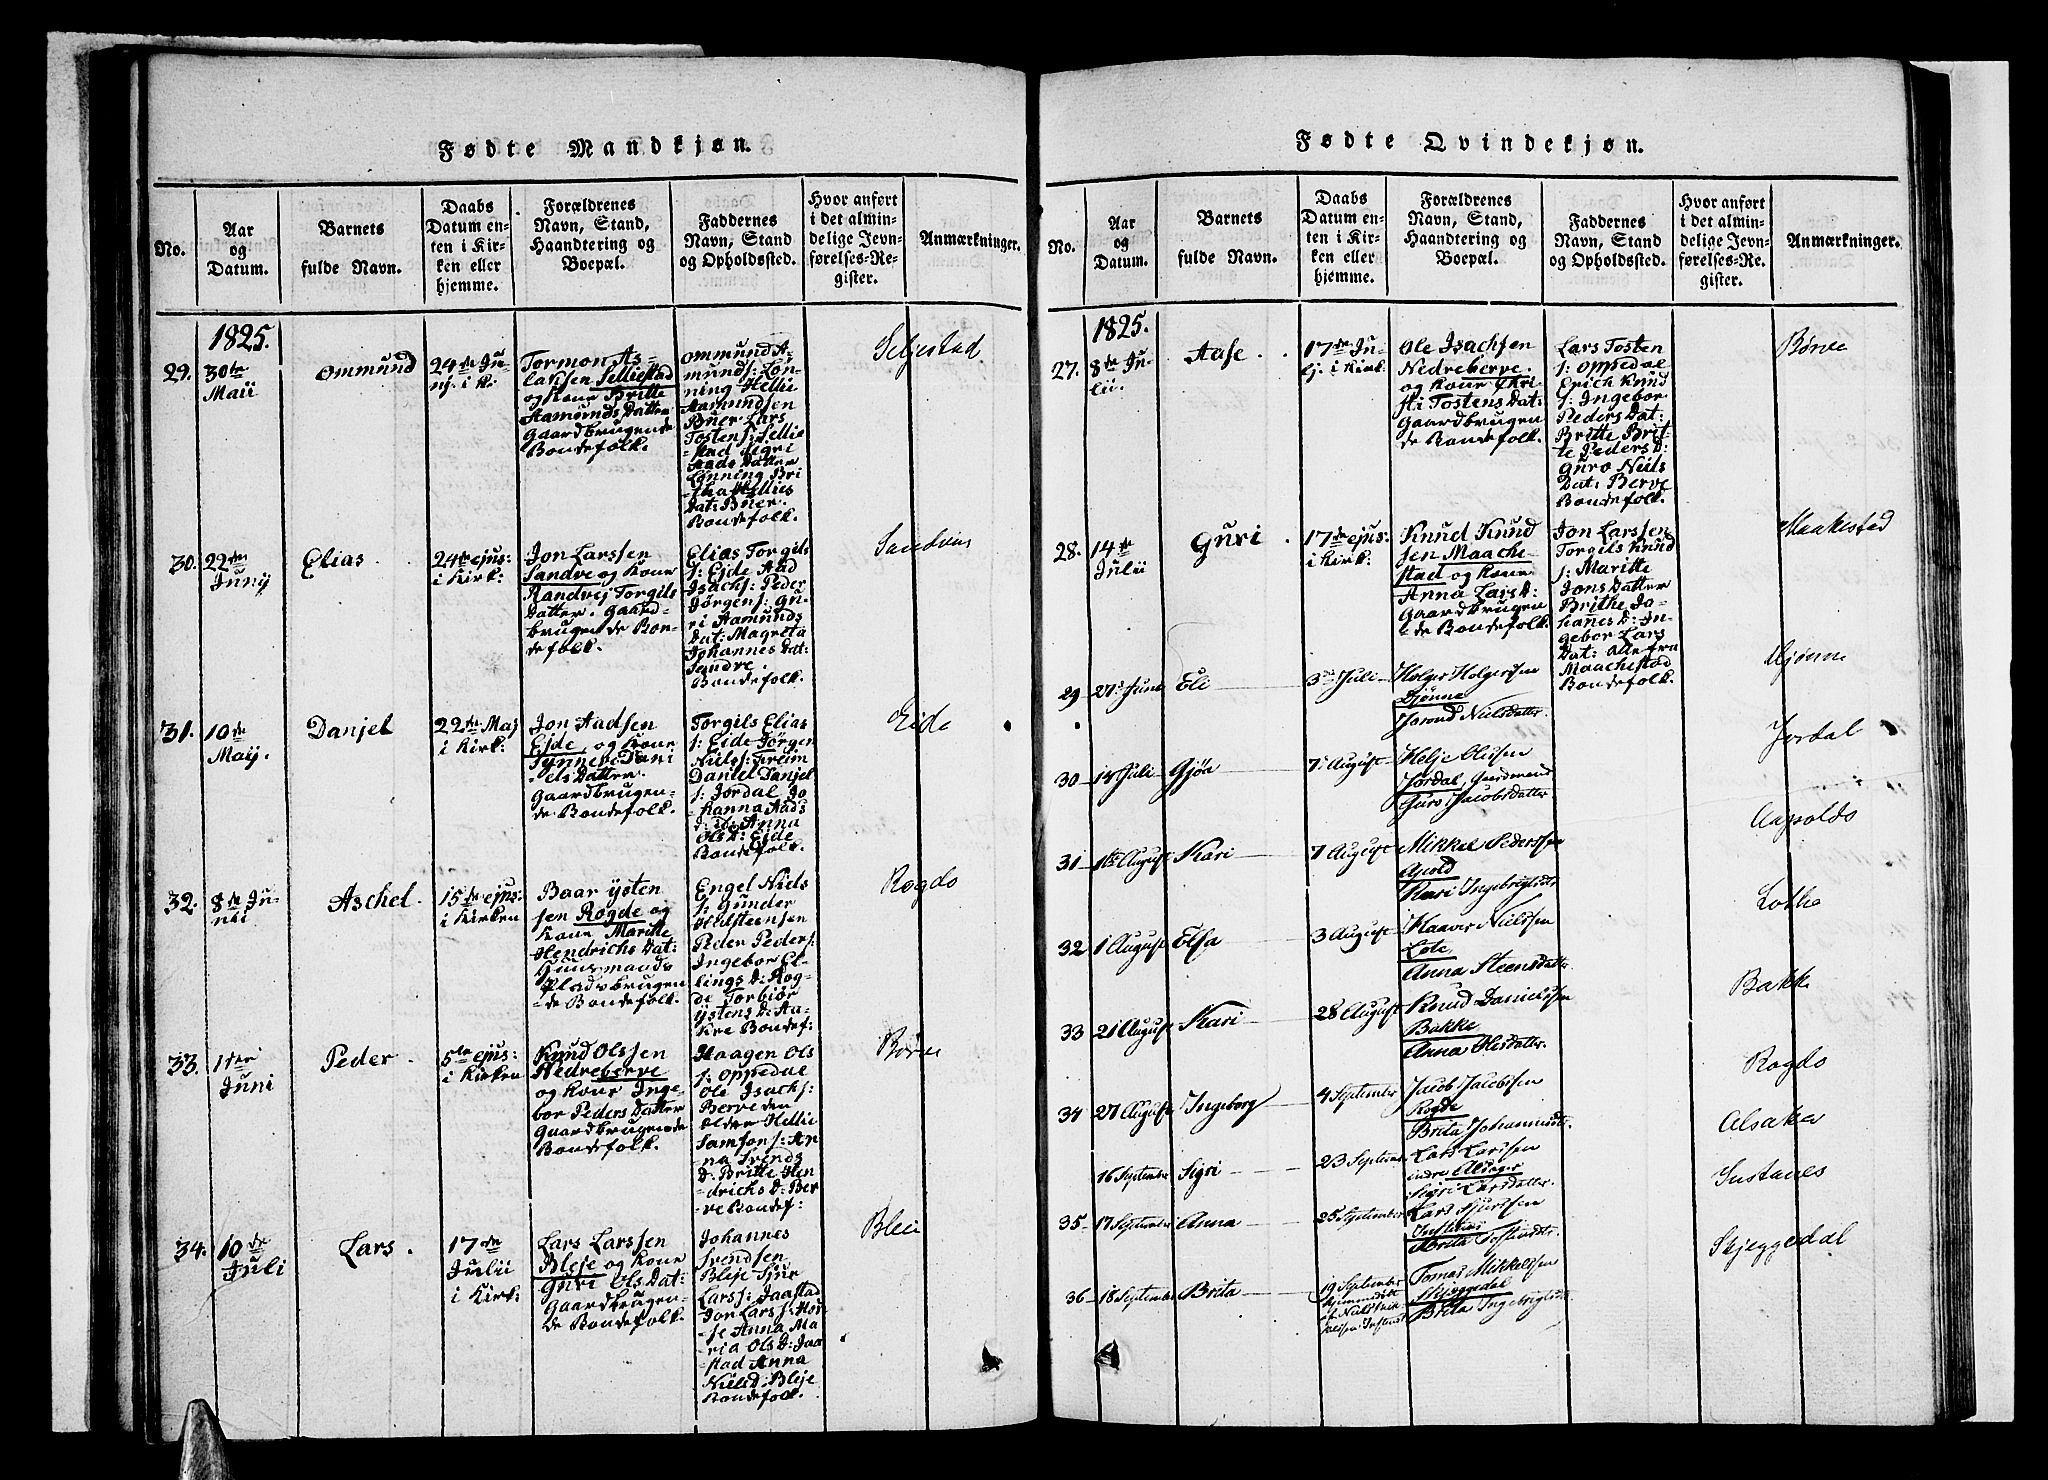 Fødte Mandkjøn.
No.
Aar
og
Datum.
Barnets
fulde Navn.
Daabs
Datum en-
ten i Kir-
ken eller
hjemme.
Forældrenes
Navn, Stand,
Haandtering og
Boepæl.
Faddernes
Navn, Stand
og Opholdssted.
Hvor anført
i det almin-
delige Jevn-
førelses-Re-
gister.
Anmærkninger.
1825.
29.
30te
Maii
Ommund
24de Ju-
nj. i K.
Tormon As-
laksen Selliestad
og Kone Britte
Aamunds Datter
Gaardbrugende
Bondefolk.
Ommund A-
munds: Lön-
ning Hellie
Aamundsen
Buer Lars
Tostens: Sellie
-stad Sigri
Aads Datter
Lönning Bri
Hellies
Dat: Buer.
Bondefolk.
Seljestad
30.
22den
Junij
Elias.
24de ejus:
i Kirk:
Jon Larssen
Sandve og Kone
Randvej Torgils
Datter. Gaard-
brugende Bon-
defolk.
Elias Torgils
s: Ejde Aad
Isachs: Peder
Jörgens: Gu-
ri Aamunds
Dat: Magreta
Johannes Dat:
Sandve.
Bondefolk.
Sandven
31.
10de
Maij.
Danjel
22de Maj
i Kirk:
Jon Aadsen
Ejde, og Kone
Synneve Dani
els Datter.
Gaardbrugen-
de Bondefolk.
Torgils Elias
s: Ejde Jörgen
Niels: Freim
Daniel Danjel
s: Jordal Jo
-hanna Aads
D: ib: Anna
Ols D: Ejde
Bondefolk.
Eide
32.
8de Ju-
nii
Aschel.
15de ejus:
i Kirken
Baar Ysten
sen Rogde og
Kone Maritte
Hendrichs Dat:
Huusmands
Pladsbrugen
-de Bondefolk.
Engel Niels
s: Gunder
Peder Peders:
Ingebor El-
lings D: Rog-
de Torbiör
Ystens D: Aa-
kre Bondef:
Rogdo
33.
1ste
Juni
Peder
5te ejus:
i Kirken
Knud Olssen
Nedreberve
og Kone Inge
bor Peders Datter
Gaardbrugende
Bondefolk.
Haagen Ols
s: Oppedal
Ole Isachs:
Berve den
older Hellie
Samsons: An
na Svends
D: Britte Hen
drichs D: Ber
ve Bondef:
Börve
34.
10de
Juli
Lars.
17de
Julii
i Kirk:
Lars Larssen
Bleje og Kone
Guri Ols Dat:
Gaardbrugen-
de Bondefolk.
Johannes
Svendsen
Bleje Sjur
Larss: Jaastad
Jon Larss: Hov
se Anna Ma
ria Ols D: Jaa
-stad Anna
Niels D: Bleje
Bondefolk.
Bleie
Fødte Qvindekjøn.
No.
Aar
og
Datum.
Barnets
fulde Navn.
Daabs
Datum en-
ten i Kir-
ken eller
hjemme.
Forældrenes
Navn, Stand,
Haandtering og
Boepæl.
Faddernes
Navn, Stand
og Opholdssted.
Hvor anført
i det almin-
delige Jevn-
førelses-Re-
gister.
Anmærkninger.
1825.
27.
8de Ju-
lii.
Aase.
17de Ju-
lj: i Kirk:
Ole Isachsen
Nedreberve.
og Kone Chri
sti Tostens Dat:
Gaardbrugen
de Bondefolk.
Lars Tosten
s: Oppedal
Erich Knud
s: Ingebor
Peders Dat:
Britte Brit-
te Peders D:
Guro Niels
Dat: Berve
Bondefolk.
Börve
28.
14de
Julii
Guri.
17de ejus:
i Kirk:
Knud Knud
sen Maache
stad og Kone
Anna Lars D:
Gaardbrugen
-de Bondefolk.
Jon Larssen
Torgils Knud
s: Maritte
Jons Datter
Brithe Jo-
hanes D: In-
gebor Lars
Dat: alle fra
Maachestad
Bondefolk.
Maakestad
29
27 Juni
Eli
3 Juli
Holger Holgersen
Djönne
Jorond Nielsdatter.
Djönne
30
Juli
Gjöa
7 August
Helje Olesen
Jordal, Gaardmand
Guro Jacobsdatter
Jordal
31
August
Kari
7 August
Mikkel Pederssen
Apold
Kari Ingebrigtsdtr
Aapoldo
32
1 August
Elsa
3 August
Haaver Nielssen
Lote
Anna Steensdatter
Lothe
33
21 August
Kari
28 August
Knud Danielssen
Bakke
Anna Olesdatter.
Bakke
34
27 August
Ingeborg
4 September
Jacob Jacobssen
Rogde
Brita Johannesdtr.
Rogdo
16 September
Sigri
23 September
Lars Larssen
indre Alsager
Sigri Larsdatter
Alsaker
35
17 September
Anna
25 September
Lars Sjurssen
Brita Tostensdtr.
Instanes
36
18 September
Brita
19 September
Tomas Mikkelssen
Skjeggedal
Brita Ingebrigtsdtr
Skjeggedal